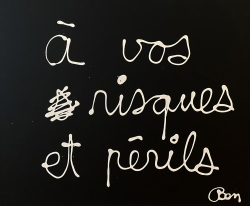 à vos
risques
et périls
Ben